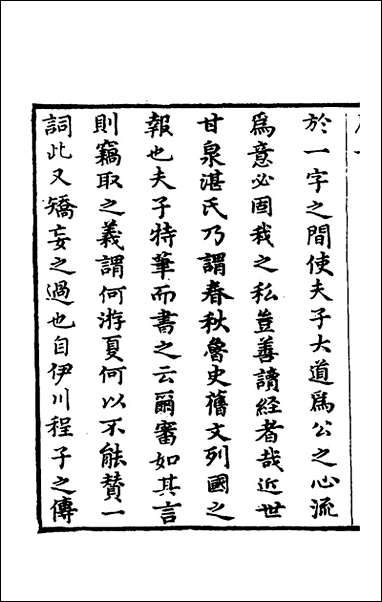 於一字之間使夫子大道爲公之心流
爲意必固我之私豈善讀經者哉近世
甘泉湛氏乃謂春秋魯史舊文列國之
報也夫子特筆而書之云爾審如其言
則竊取之義謂何游夏何以不能贊一
詞此又矯妄之過也自伊川程子之傳